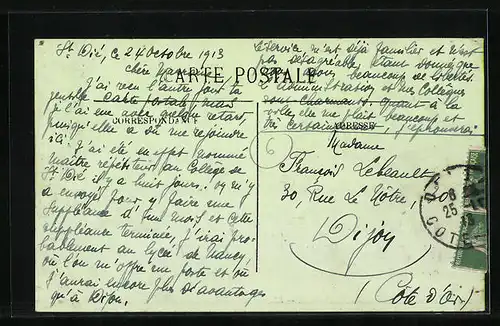 St Dié, ce 24 Octobre 1913
Chère
J'ai reçu l'autre jour ta
gentille carte postale, mais
je l'ai eue avec quelque retard,
puisqu'elle a dû me rejoindre
ici. J'ai été en effet nommé
maître répétiteur au Collège de
St Dié il y a huit jours. On m'y
a envoyé pour y faire une
suppléance d'un mois et cette
suppléance terminée, j'irai pro-
bablement au lycée de Nancy,
où l'on m'offre un poste et où
j'aurai encore plus d'avantages
qu'à Dijon.
Le service m'est déjà familier et n'est
pas désagréable, étant donné que
nous avons beaucoup de liberté.
L'administration et mes Collègues
sont charmants. Quant à la
ville, elle me plaît beaucoup et
très certainement, j'
CARTE POSTALE
CORRESPONDANCE
ADRESSE
6
Madame
François Lebeault
30, Rue Le Nôtre, 30
Dijon
(Côte d'Or)